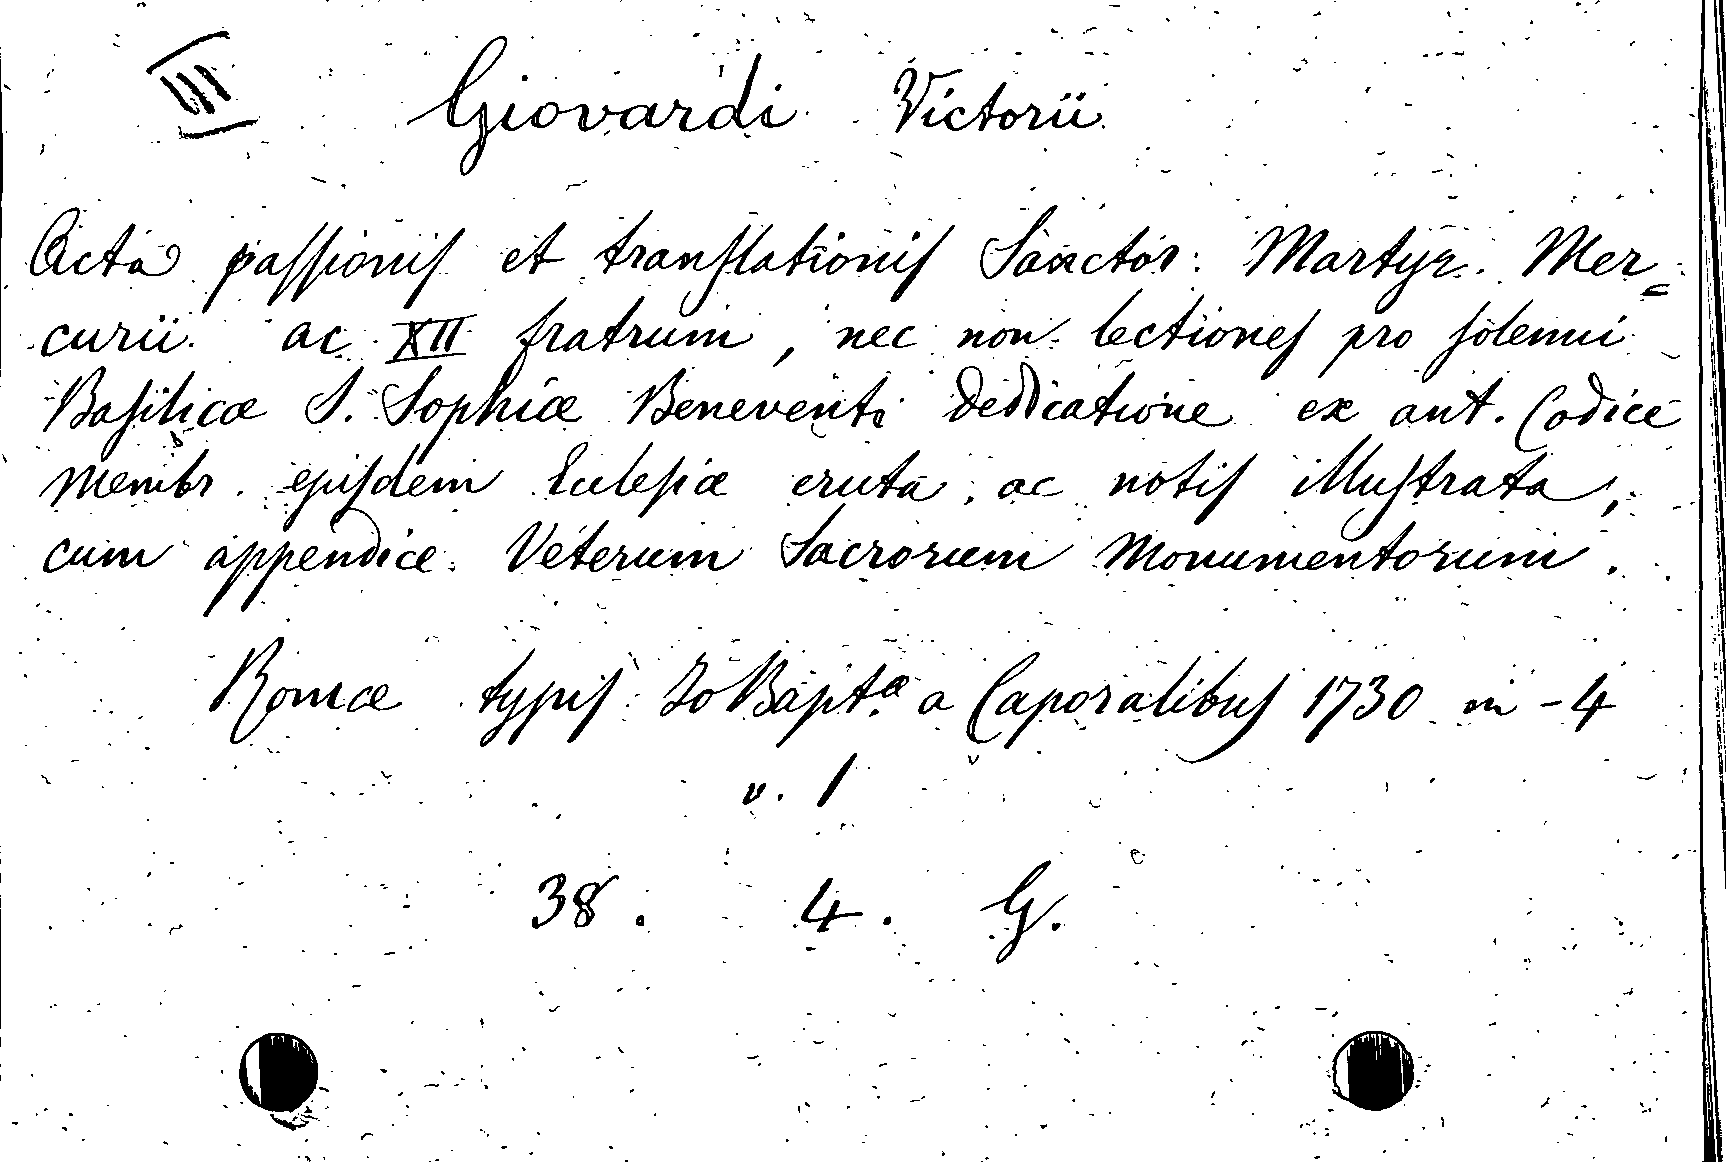 III Giovardi Victorii
Acta passionis et translationis Sanctor. Martyr. Mer=
curii ac XII fratrum, nec non lectiones pro solemni
Basilicæ S. Sophiæ Beneventi dedicatione ex ant. Codice
membr. ejusdem Eclesiæ eruta, ac notis illustrata,
cum appendice Veterum Sacrorum Monumentorum.
Romæ typis Jo Bapt.æ a Caporalibus 1730 in-4
v. 1
38. 4. G.